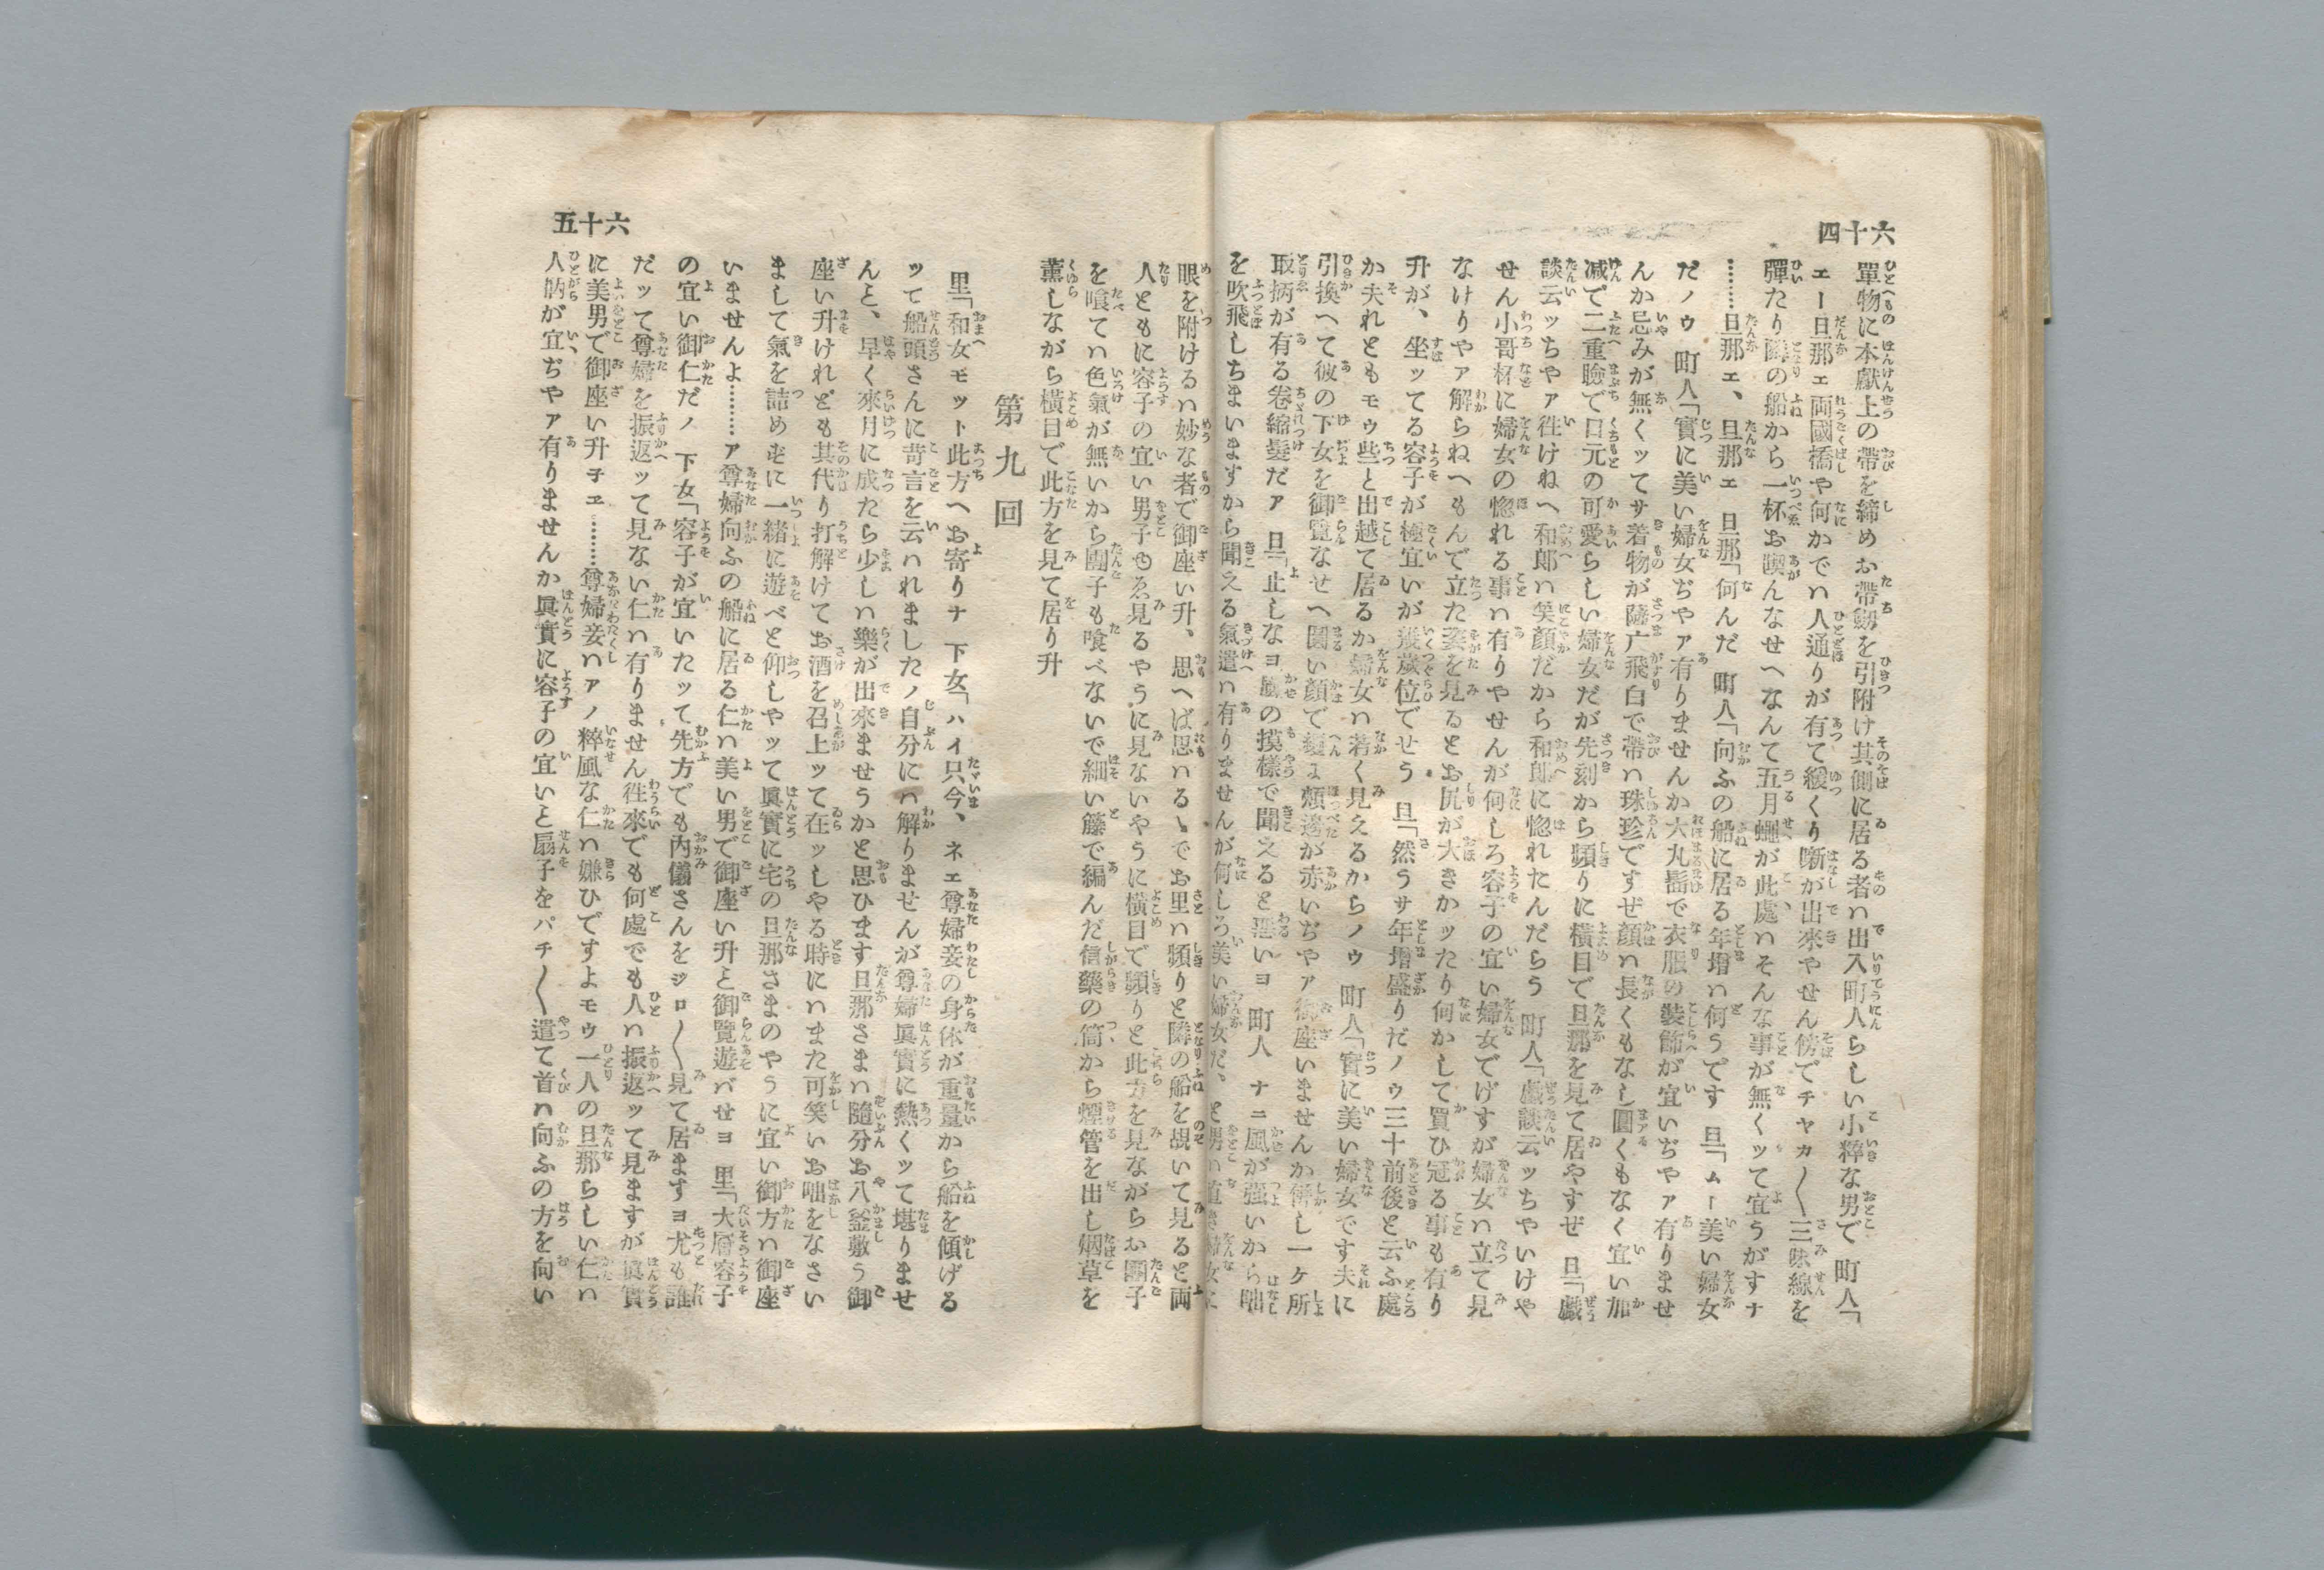 六十四
單物に本獻上の帶を締めお帶劔を引附け其側に居る者ハ出入町人らしい小粹な男で 町人「
エー旦那ェ両國橋や何かでハ人通りが有て緩くり噺が出來やせん傍でチャカ〱三味線を
彈たり隣の船から一杯お喫んなせへなんて五月蠅が此處ハそんな事が無くッて宜うがすナ
………旦那ェ、旦那ェ 旦那「何んだ 町人「向ふの船に居る年増ハ何うです 旦「ムー美い婦女
だノウ 町人「實に美い婦女ぢやア有りませんか大丸髷で衣服の裝飾が宜いぢやア有りませ
んか忌みが無くッてサ着物が薩广飛白で帶ハ珠珍ですぜ顔ハ長くもなし圓くもなく宜い加
减で二重瞼で口元の可愛らしい婦女だが先刻から頻りに橫目で旦那を見て居やすぜ 旦「戯
談云ッちやア徃けねへ和郎ハ笑顔だから和郎に惚れたんだらう 町人「戯談云ッちやいけや
せん小哥抔に婦女の惚れる事ハ有りやせんが何しろ容子の宜い婦女でげすが婦女ハ立て見
なけりやア解らねへもんで立た姿を見るとお尻が大きかッたり何かして買ひ冠る事も有り
升が、坐ッてる容子が極宜いが幾歳位でせう 旦「然うサ年増盛りだノウ三十前後と云ふ處
か夫れともモゥ些と出越て居るか婦女ハ若く見えるからノウ 町人「實に美い婦女です夫に
引換へて彼の下女を御覽なせへ圓い顔で頬邊が赤いぢやア御座いませんか併し一ケ所
取柄が有る卷縮髮だア 旦「止しなヨ風の摸樣で聞えると惡いヨ 町人 ナニ風が强いから咄
を吹飛しちまいますから聞える氣遣ハ有りませんが何しろ美い婦女だ、と男ハ道き婦女に
眼を附けるハ妙な者で御座い升、思へば思ハるゝでお里ハ頻りと隣の船を覘いて見ると両
人ともに容子の宜い男子ゆゑ見るやうに見ないやうに橫目で頻りと此方を見ながらお團子
を喰てハ色氣が無いから團子も喰べないで細い籐で編んだ信藥の筒から煙管を出し烟草を
薫しながら橫目で此方を見て居り升
第九回
里「和女モット此方へお寄りナ 下女「ハイ只今、ネエ尊婦妾の身体が重量から船を傾げる
ッて船頭さんに苛言を云ハれましたノ自分にハ解りませんが尊婦眞實に熱くッて堪りませ
んと、早く來月に成たら少しハ樂が出來ませうかと思ひます旦那さまハ隨分お八釜敷う御
座い升けれども其代り打解けてお酒を召上ッて在ッしやる時にハまた可笑いお咄をなさい
まして氣を詰めずに一緖に遊べと仰しやッて眞實に宅の旦那さまのやうに宜い御方ハ御座
いませんよ………ア尊婦向ふの船に居る仁ハ美い男で御座い升と御覽遊バせヨ 里「大層容子
の宜い御仁だノ 下女「容子が宜いたッて先方でも内儀さんをジロ〱見て居ますヨ尤も誰
だッて尊婦を振返ッて見ない仁ハ有りません徃來でも何處でも人ハ振返ッて見ますが眞實
に美男で御座い升チヱ………尊婦妾ハアノ粹風な仁ハ嫌ひですよモウ一人の旦那らしい仁ハ
人品が宜いぢやア有りませんか眞實に容子の宜いと扇子をパチ〱遣て首ハ向ふの方を向い
六十五